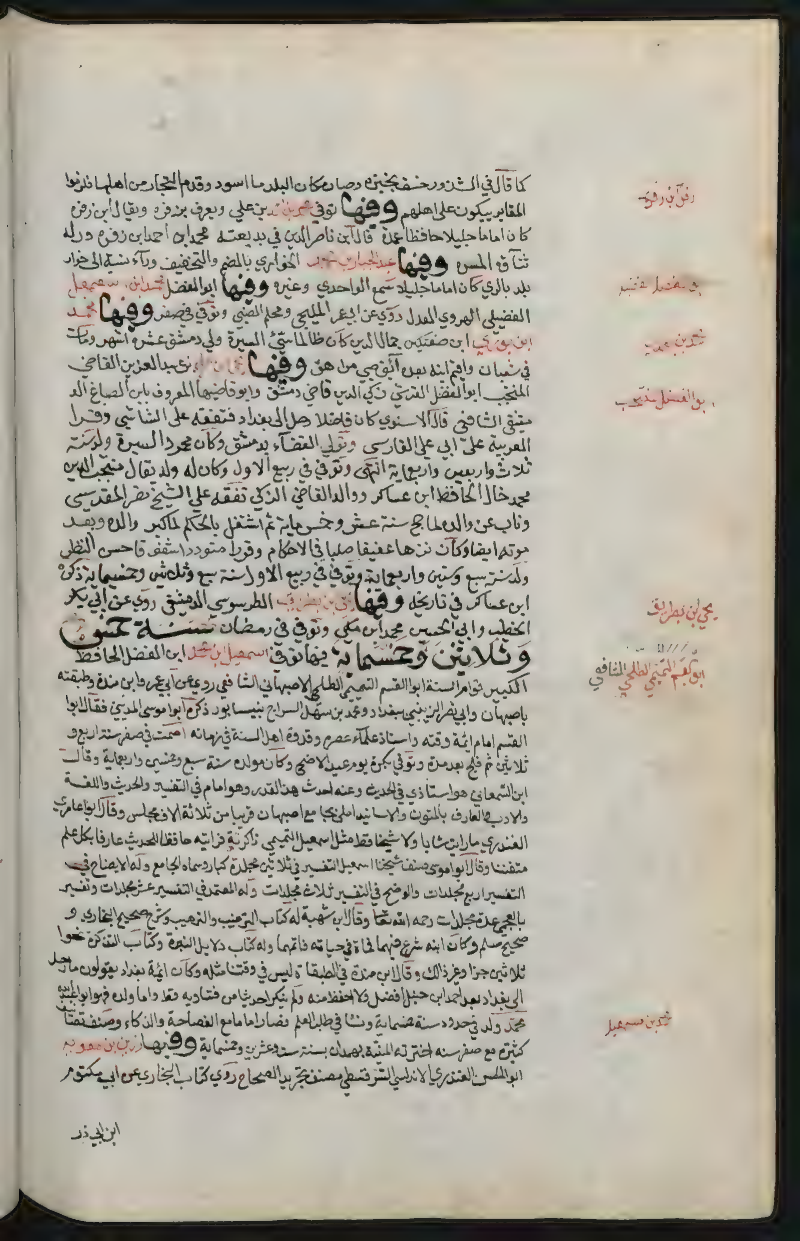 كما قال في الشذور خسف بخبزه وصار مكان البلد ماء اسود وقدم التجار من اهلها فلزموا
المقابر يبكون على اهلهم وفيها توفي بن علي ويعرف بزفره ويقال ابن زفره
كان اماما جليلا حافظا عمدة قال ابن ناصر الدين في بديعته محمد ابن احمد ابن زفره وزله
ثناؤه المسره وفيها عبد الجبار بن محمد الخواري بالضم والتخفيف وراء نسبة الى خوار
بلد بالري كان اماما جليلا سمع الواحدي وغيره وفيها ابو الفضل محمد ابن اسمعيل
الفضيلي الهروي العدل روي عن ابي عمر المليحي ومحلم الضبي وتوفي في صفر وفيها محمد
ابن بوري ابن طغتكين جمال الدين كان ظالما سيئ السيرة ولي دمشق عشرة اشهر ومات
في شعبان واقيم ابنه بعده ابق صبي مراهق وفيها بن عبد العزيز القاضي
المنتجب ابو الفضل القرشي زكي الدين قاضي دمشق وابو قاضيها المعروف بابن الصايغ الد
مشقي الشافعي قال الاسنوي كان فاضلا رحل الى بغداد فتفقه على الشاشي وقرا
العربية على ابي علي الفارسي وتولي القضاء بدمشق وكان محمود السيرة ولد سنة
ثلاث واربعين واربعماية انتهى وتوفي في ربيع الاول وكان له ولد يقال منتجب الدين
محمد خال الحافظ ابن عساكر ووالد القاضي الزكي تفقه علي الشيخ نصر المقدسي
وناب عن والده لما حج سنة عشر وخمس ماية ثم اشتغل بالحكم لما كبر والده وبعد
موته ايضا وكان نزها عفيفا صلبا في الاحكام وقورا متوددا شفوقا حسن النظر
ولد سنة سبع وستين واربعماية وتوفي في ربيع الاول سنة سبع وثلاثين وخمسماية ذكره
ابن عساكر في تاريخه وفيها يحيى بن بطريق الطرسوسي الدمشقي روي عن ابي بكر
الخطيب وابي الحسين محمد ابن مكي وتوفي في رمضان سنة خمس
وثلاثين وخمسماية فيها توفي اسمعيل بن محمد ابن الفضل الحافظ
الكبير قوام السنة ابو القسم التيمي الطلحي الاصبهاني الشافعي روي عن ابي عمر وابن مندة وطبقته
باصبهان وابي نصر الزينبي ببغداد ومحمد بن سهل السراج بنيسابور ذكره ابو موسى المديني فقال ابو
القسم امام ايمة وقته واستاذ علماء عصره وقدوة اهل السنة في زمانه اصمت في صفر سنة اربع و
ثلاثين ثم فلج بعد مدة وتوفي بكرة يوم عيد الاضحى وكان مولده سنة سبع وخمسين واربعماية وقال
ابن السمعاني هو استاذي في الحديث وعنه اخذت هذا القدر وهو امام في التفسير والحديث واللغة
والادب العارف بالمتون والاسانيد املي بجامع اصبهان قريبا من ثلاثة الاف مجلس وقال ابو عامر
الغندري ما رايت شابا ولا شيخا قط مثل اسمعيل التيمي ذاكرته فرايته حافظا للحديث عارفا بكل علم
متفننا وقال ابو موسى صنف شيخنا اسمعيل التفسير في ثلاثين مجلدة كبار وسماه الجامع وله الايضاح في
التفسير اربع مجلدات والموضح في التفسير ثلاث مجلدات وله المعتمد في التفسير عشر مجلدات وتفسير
بالعجمي عدة مجلدات رحمه الله تعا وقال ابن شهبة له كتاب الترغيب والترهيب وشرح صحيح البخاري و
صحيح مسلم وكان ابنه شرع فيهما فمات في حياته فاتمهما وله كتاب دلايل النبوة وكتاب التذكرة نحوا
ثلاثين جزا وغير ذالك وقال ابن مندة في الطبقات ليس في وقتنا مثله وكان ايمة بغداد يقولون ما رحل
الى بغداد بعد احمد ابن حنبل افضل ولا احفظ منه ولم ينكر احد شيا من فتاويه قط واما ولده فهو ابو عبد الله
محمد ولد في حدود سنة خمسماية ونشا في طلب العلم فصار اماما مع الفصاحة والذكاء وصنف تصانيف
كثيره مع صغر سنه اخترته المنية بهمدان سنة ست وعشرين وخمسماية وفيها رزين بن معوية
ابو الحسن العبدري الاندلسي السرقسطي مصنف تجريد الصحاح روي كتاب البخاري عن ابي مكتوم
ابن ابي ذر
يحي ابن بطريق
ابو القسم التيمي الطلحي الشافعي
محمد بن اسمعيل